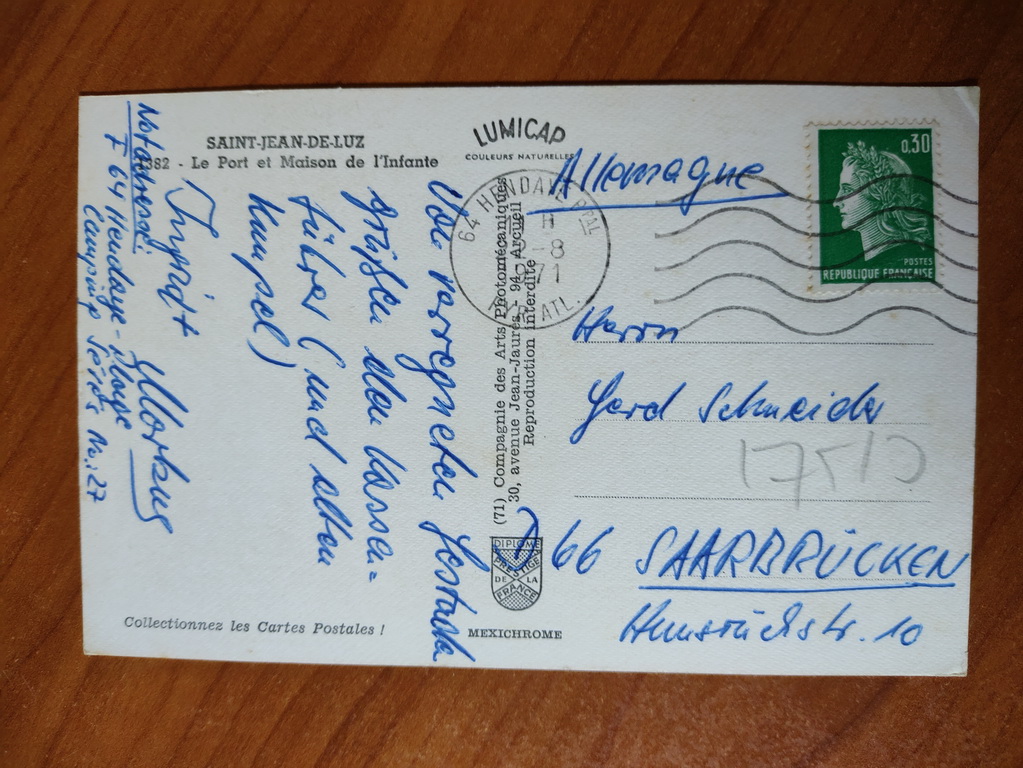 SAINT-JEAN-DE-LUZ
1382 - Le Port et Maison de l'Infante
LUMICAP
COULEURS NATURELLES
Vom verregneten Gestade
grüßen den Kassen-
führer (und alten
Kumpel)
Ingrid + Markus
Notadresse:
F 64 Hendaye-Plage
Camping Sérès No. 27
(71) Compagnie des Arts Photomécaniques
30, avenue Jean-Jaurès - 94 - Arcueil
Reproduction interdite
64 HENDAYE PPAL
H
-8
1971
PYR. ATL.
0,30
POSTES
REPUBLIQUE FRANÇAISE
Allemagne
Herrn
Gerd Schneider
1751
D 66 SAARBRÜCKEN
Hunsrückstr. 10
DIPLOME
PRESTIGE
DE LA
FRANCE
MEXICHROME
Collectionnez les Cartes Postales !